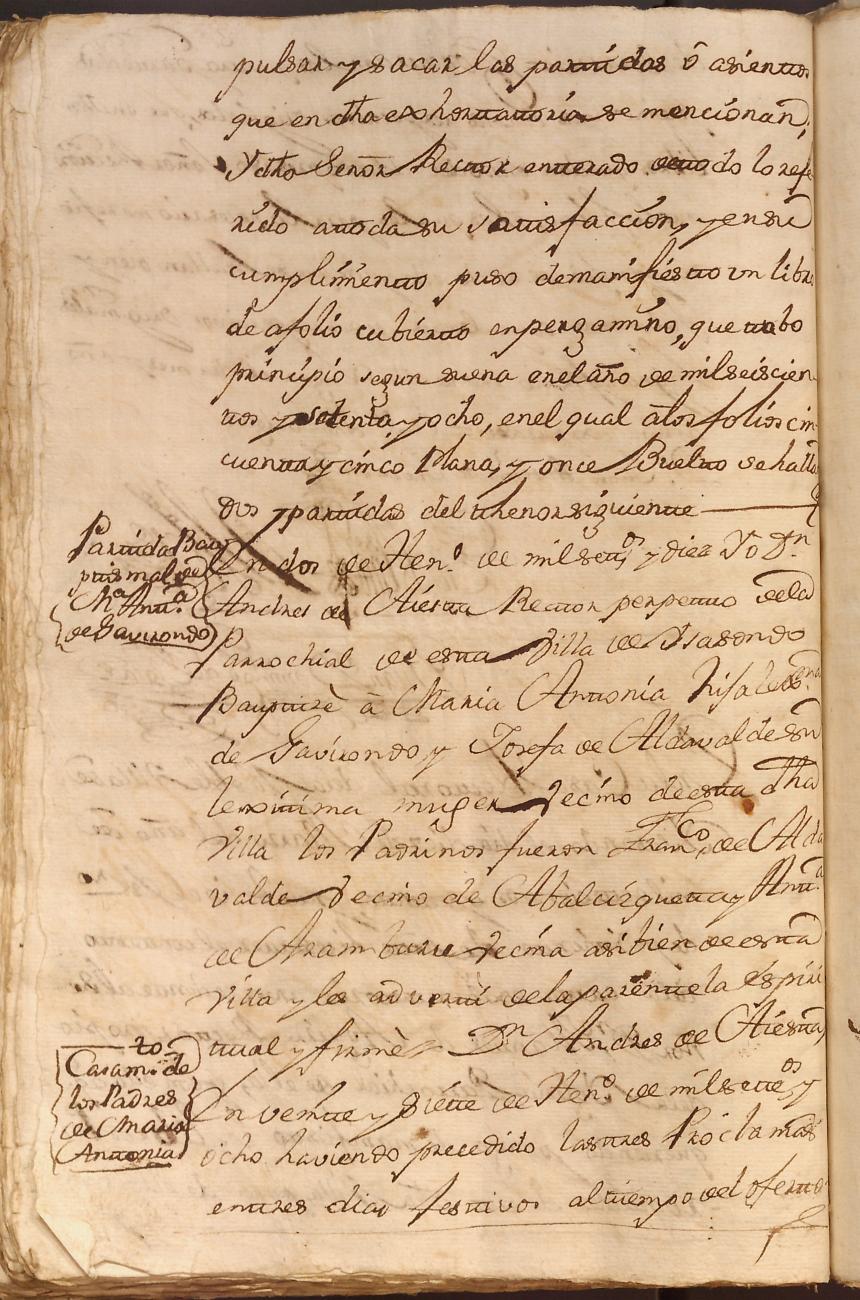 pulsar y sacar las partidas ô asientos
que en dha exhortatoria se mencionan,
Y dho Señor Rector enterado de todo lo refe
rido a toda su satisfaccion, y en su
cumplimiento puso de manifiesto un libro
de a folio cubierto en pergamino, que tubo
principio segun suena en el año de mil seiscien
tos y setenta y ocho, en el qual â los folios cin
cuenta y cinco Plana, y once Buelto se hallā
dos partidas del thenor siguiente
Partida Bau
tismal de
Mª Antª
de Gavirondo
En dos de Hen.º de mil setos y diez Yo Dn
Andres de Aiesta Rector perpetuo de la
Parrochial de esta Villa de Isasondo
Bauptizè â Maria Antonia hija de
de Gavirondo y Josefa de Aldavalde su
lexitima muger Vecino de esta dha
Villa los Padrinos fueron Franco de Alda
valde Vecino de Abalcizqueta y Anta
de Aramburu vecina asi bien de esta
Villa y les advertí de la parentela Espiri
tual y firmè Dn Andres de Aiesta
Casamto de
los Padres
de Maria
Antonia
En veinte y siete de Hen.º de mil setesos y
ocho haviendo precedido las tres Proclamas
en tres dias festivos al tiempo del ofertorio